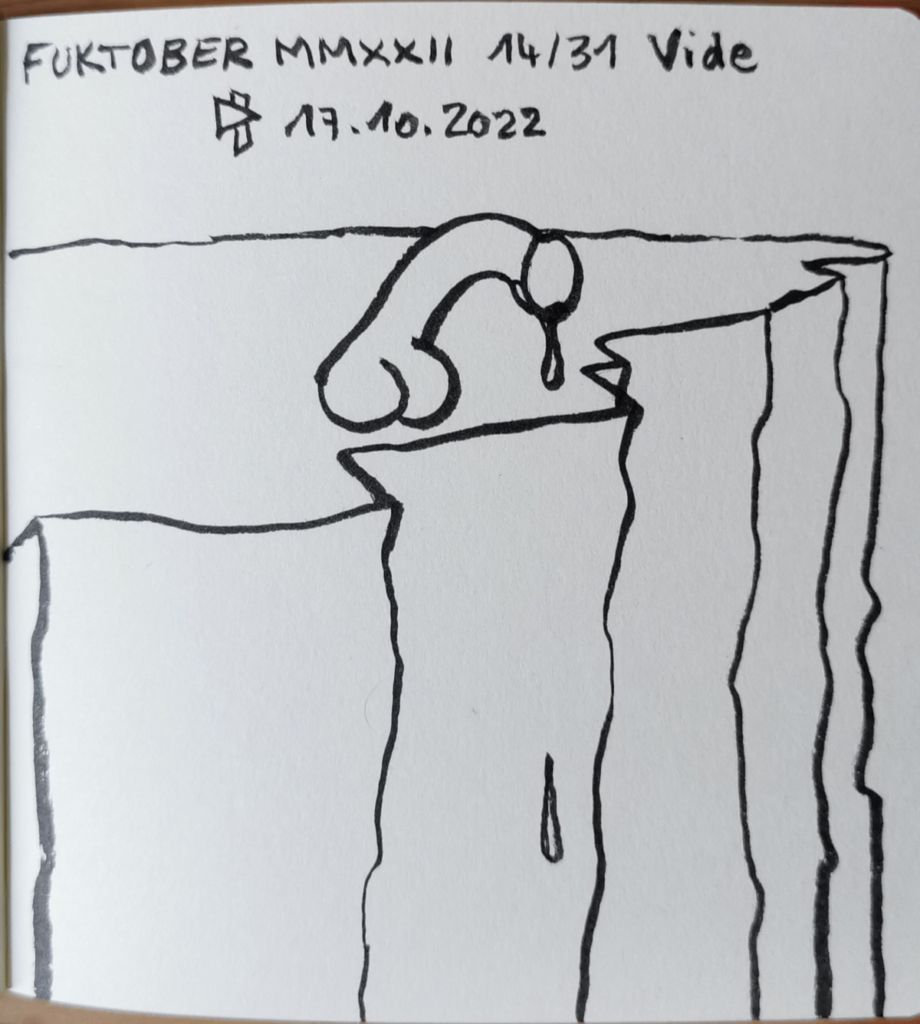 FUKTOBER MMXXII 14/31 Vide
17.10.2022